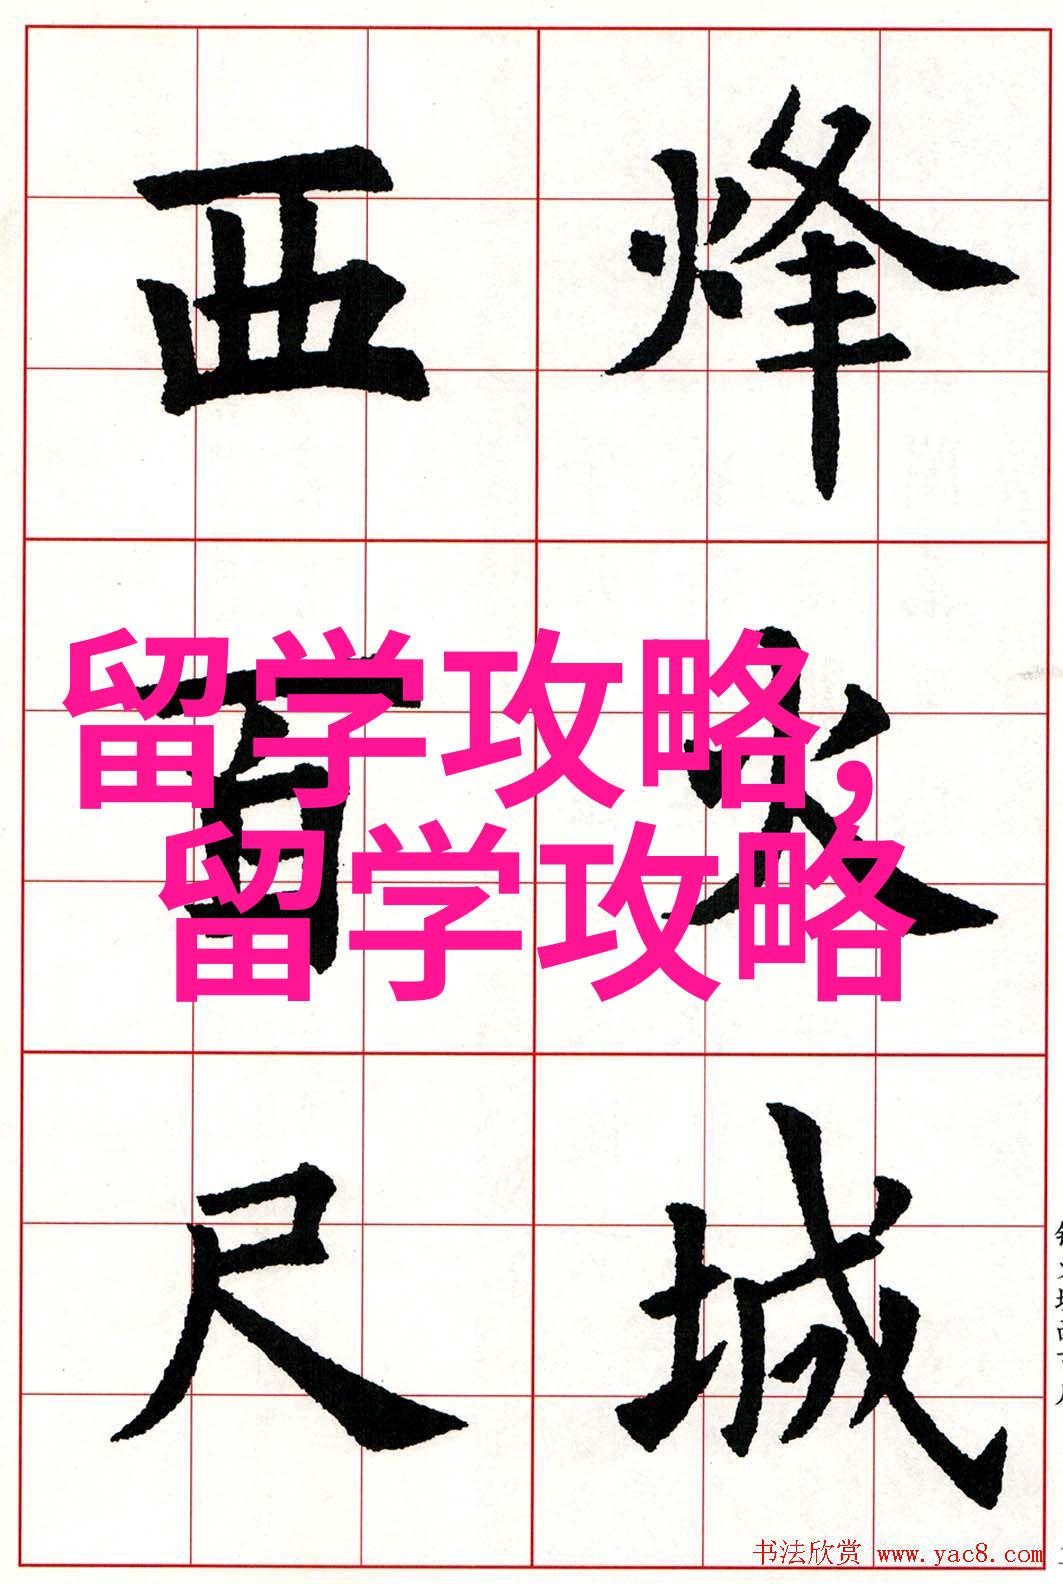 烽火城
西百尺
留学攻略,
留学攻略
书法欣赏 www.yac8.com